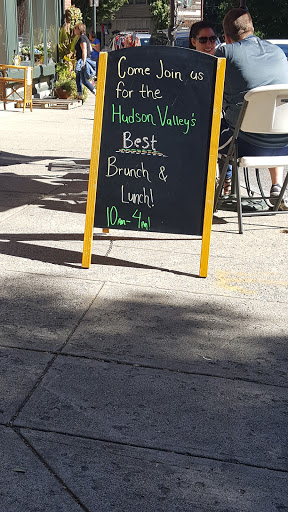 Come Join us
for the
Hudson Valley's
Best
Brunch &
Lunch!
10am-4pm!